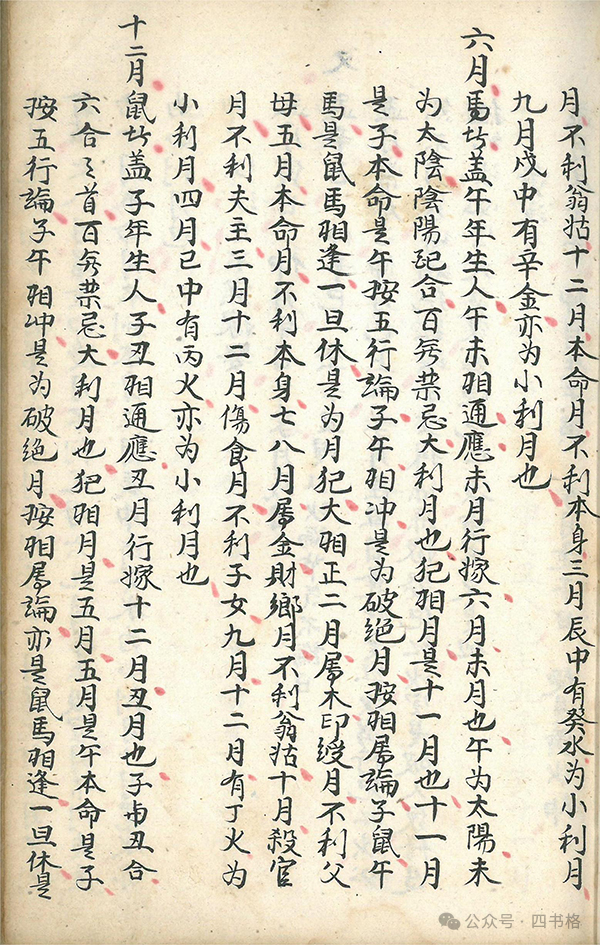 月不利翁姑十二月本命月不利本身三月辰中有癸水为小利月
九月戌中有辛金亦为小利月也
六月馬 盖午年生人午未相通應未月行嫁六月未月也午为太陽未
为太陰陰陽配合百无禁忌大利月也犯相月是十一月也十一月
是子本命是午按五行論子午相冲是为破绝月按相屬論子鼠午
馬是鼠馬相逢一旦休是为月犯大相正二月屬木印綬月不利父
母五月本命月不利本身七八月屬金財鄉月不利翁姑十月殺官
月不利夫主三月十二月傷食月不利子女九月十二月有丁火为
小利月四月已中有丙火亦为小利月也
十二月鼠 盖子年生人子丑相通應丑月行嫁十二月丑月也子与丑合
六合之首百无禁忌大利月也犯相月是五月五月是午本命是子
按五行論子午相冲是为破绝月按相屬論亦是鼠馬相逢一旦休是
公众号·四书格